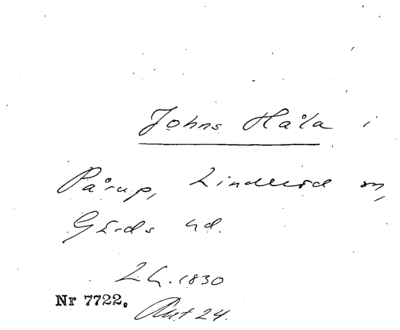 Johns Håla i
Pårup, Linderöd sn,
Gärds hd.
LL. 1830
Nr 7722.
Akt 24.